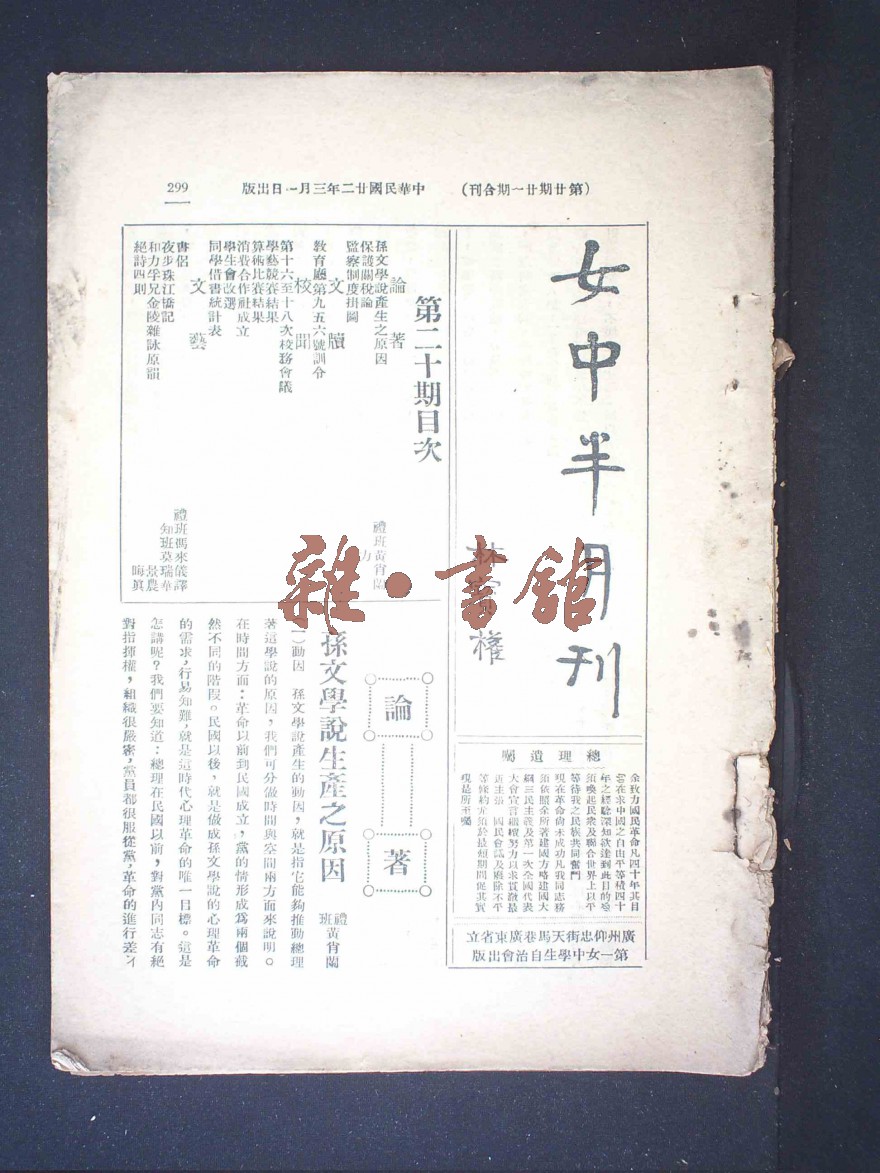 (第廿期廿一期合刊)
中華民國廿二年三月一日出版
299
女中半月刊
林
權
總理遺囑
余致力國民革命凡四十年其目
的在求中國之自由平等積四十
年之經驗深知欲達到此目的必
須喚起民衆及聯合世界上以平
等待我之民族共同奮鬥
現在革命尚未成功凡我同志務
須依照余所著建國方略建國大
綱三民主義及第一次全國代表
大會宣言繼續努力以求貫澈最
近主張 國民會議及廢除不平
等條約尤須於最短期間促其實
現是所至囑
廣州仰忠街天馬巷廣東省立
第一女中學生自治會出版
第二十期目次
論著
孫文學說產生之原因 禮班黃肖蘭
保護關稅論 力
監察制度掛圖
文牘
教育廳第九五六號訓令
校聞
第十六至十八次校務會議
學藝競賽結果
算術比賽結果
消費合作社成立
學生會改選
同學借書統計表
文藝
書侶 禮班馮來儀譯
夜步珠江橋記 知班莫瑞華
和力孚兄金陵雜詠原韻 景農
絕詩四則 晦眞
論著
孫文學說生產之原因
禮班黃肖蘭
(一)動因 孫文學說產生的動因,就是指它能夠推動總理
著這學說的原因,我們可分做時間與空間兩方面來說明。
在時間方面:革命以前到民國成立,黨的情形成爲兩個截
然不同的階段。民國以後,就是做成孫文學說的心理革命
的需求,行易知難,就是這時代心理革命的唯一目標。這是
怎講呢?我們要知道:總理在民國以前,對黨內同志有絕
對指揮權,組織很嚴密,黨員都很服從黨,革命的進行差不
雜·書館